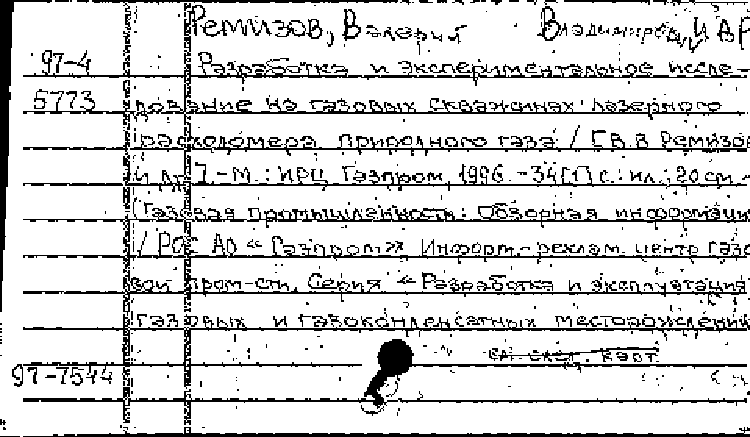 Ремизов, Валерий Владимирович, И ДР
97-4 Разработка и экспериментальное иссле-
5773 дование на газовых скважинах лазерного
расходомера природного газа / [В.В Ремизов
и др.]. - М.: ИРЦ Газпром, 1996. - 34[1] с.: ил.; 20 см. -
(Газовая промышленность: Обзорная информация
/ Рос АО «Газпром», Информ.-реклам. центр газо
вой пром-сти, Серия «Разработка и эксплуатация
газовых и газоконденсатных месторождений
см. след. карт
97-7544